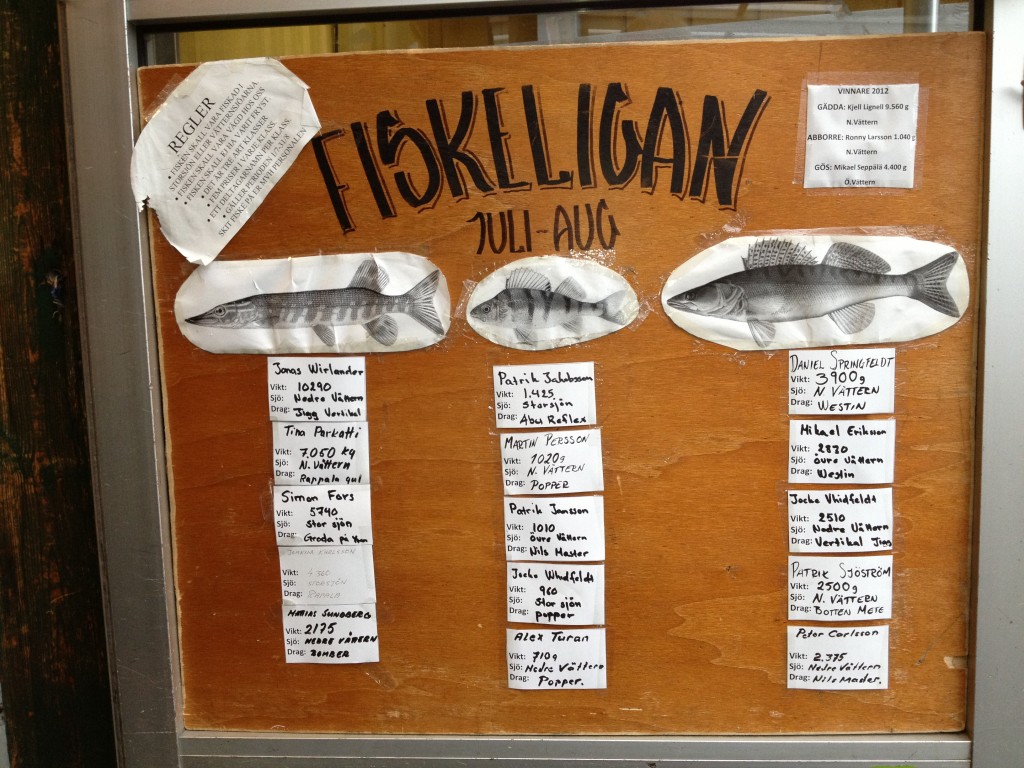 REGLER
• FISKEN SKALL VARA FISKAD I
STORSJÖN ELLER VÄTTERNSJÖARNA
• FISKEN SKALL VARA VÄGD HOS OSS
• FISKEN SKALL EJ HA VARIT FRYST
• DET ÄR TRE ART KLASSER
• FEM PRISER I VARJE KLASS
ETT DELTAGARNAMN PER KLASS.
• GÄLLER PERIODEN
SKIT FISKE PÅ ER MVH PERSONALEN!
FISKELIGAN
JULI-AUG
VINNARE 2012
GÄDDA: Kjell Lignell 9.560 g
N.Vättern
ABBORRE: Ronny Larsson 1.040 g
N.Vättern
GÖS: Mikael Seppälä 4.400 g
Ö.Vättern
Jonas Wirlander
Vikt: 10290
Sjö: Nedre Vättern
Drag: Jigg Vertikal
Tina Parkatti
Vikt: 7.050 kg
Sjö: N.Vättern
Drag: Rappala gul
Simon Fors
Vikt: 5740
Sjö: Stor sjön
Drag: Grada på
KARLSSON
Vikt:
Sjö: STORSJÖN
Drag: RAPALA
MATIAS SUNDBERG
Vikt: 2175
Sjö: NEDRE VÄTTERN
Drag: ZOMBER
Patrik Jakobsson
Vikt: 1.425
Sjö: Storsjön
Drag: Abu Reflex
MARTIN PERSSON
Vikt: 1020g
Sjö: N. VÄTTERN
Drag: POPPER
Patrik Jansson
Vikt: 1010
Sjö: Övre Vättern
Drag: Nils Master
Jocke Whidfeldt
Vikt: 960
Sjö: Stor sjön
Drag: popper
Alex Turan
Vikt: 710g
Sjö: Nedre Vättern
Drag: Popper.
DANIEL SPRINGFELDT
Vikt: 3900g
Sjö: N VÄTTERN
Drag: WESTIN
Mikael Eriksson
Vikt: 2830
Sjö: Övre Vättern
Drag: Westin
Jocke Vhidfeldt
Vikt: 2510
Sjö: Nedre Vättern
Drag: Vertikal Jigg
PATRIK SJÖSTRÖM
Vikt: 2500g
Sjö: N. VÄTTERN
Drag: BOTTEN METE
Peter Carlsson
Vikt: 2.375
Sjö: Nedre Vättern
Drag: Nils Mader.